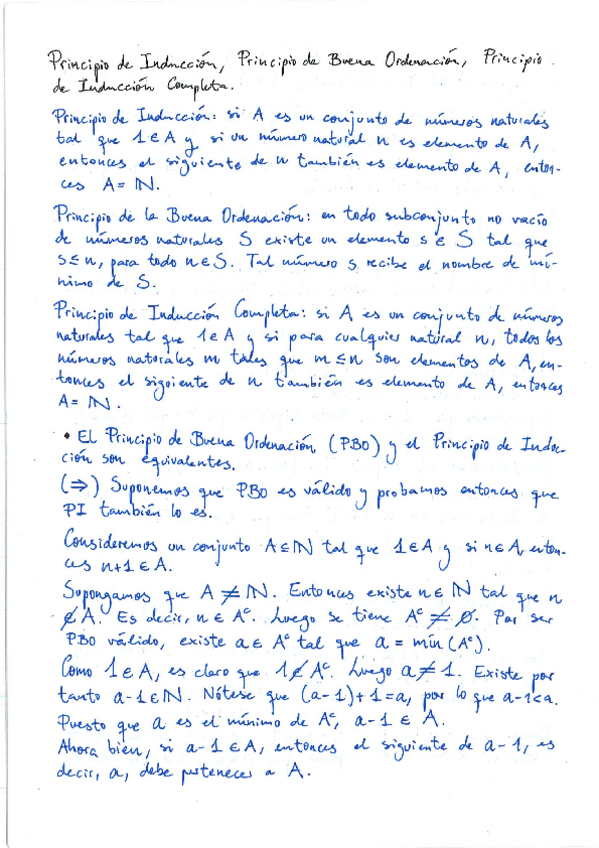 Principio de Inducción, Principio de Buena Ordenación, Principio
de Inducción Completa.
Principio de Inducción: si A es un conjunto de números naturales
tal que 1 ∈ A y si un número natural n es elemento de A,
entonces el siguiente de n también es elemento de A, enton-
ces A = ℕ.
Principio de la Buena Ordenación: en todo subconjunto no vacío
de números naturales S existe un elemento s ∈ S tal que
s ≤ n, para todo n ∈ S. Tal número s recibe el nombre de mí-
nimo de S.
Principio de Inducción Completa: si A es un conjunto de números
naturales tal que 1 ∈ A y si para cualquier natural n, todos los
números naturales m tales que m ≤ n son elementos de A, en-
tonces el siguiente de n también es elemento de A, entonces
A = ℕ.
• El Principio de Buena Ordenación (PBO) y el Principio de Induc-
ción son equivalentes.
(⇒) Suponemos que PBO es válido y probamos entonces que
PI también lo es.
Consideremos un conjunto A ⊆ ℕ tal que 1 ∈ A y si n ∈ A, enton-
ces n+1 ∈ A.
Supongamos que A ≠ ℕ. Entonces existe n ∈ ℕ tal que n
∉ A. Es decir, n ∈ Aᶜ. Luego se tiene Aᶜ ≠ ∅. Por ser
PBO válido, existe a ∈ Aᶜ tal que a = mín(Aᶜ).
Como 1 ∈ A, es claro que 1 ∉ Aᶜ. Luego a ≠ 1. Existe por
tanto a-1 ∈ ℕ. Nótese que (a-1)+1=a, por lo que a-1<a.
Puesto que a es el mínimo de Aᶜ, a-1 ∈ A.
Ahora bien, si a-1 ∈ A, entonces el siguiente de a-1, es
decir, a, debe pertenecer a A.